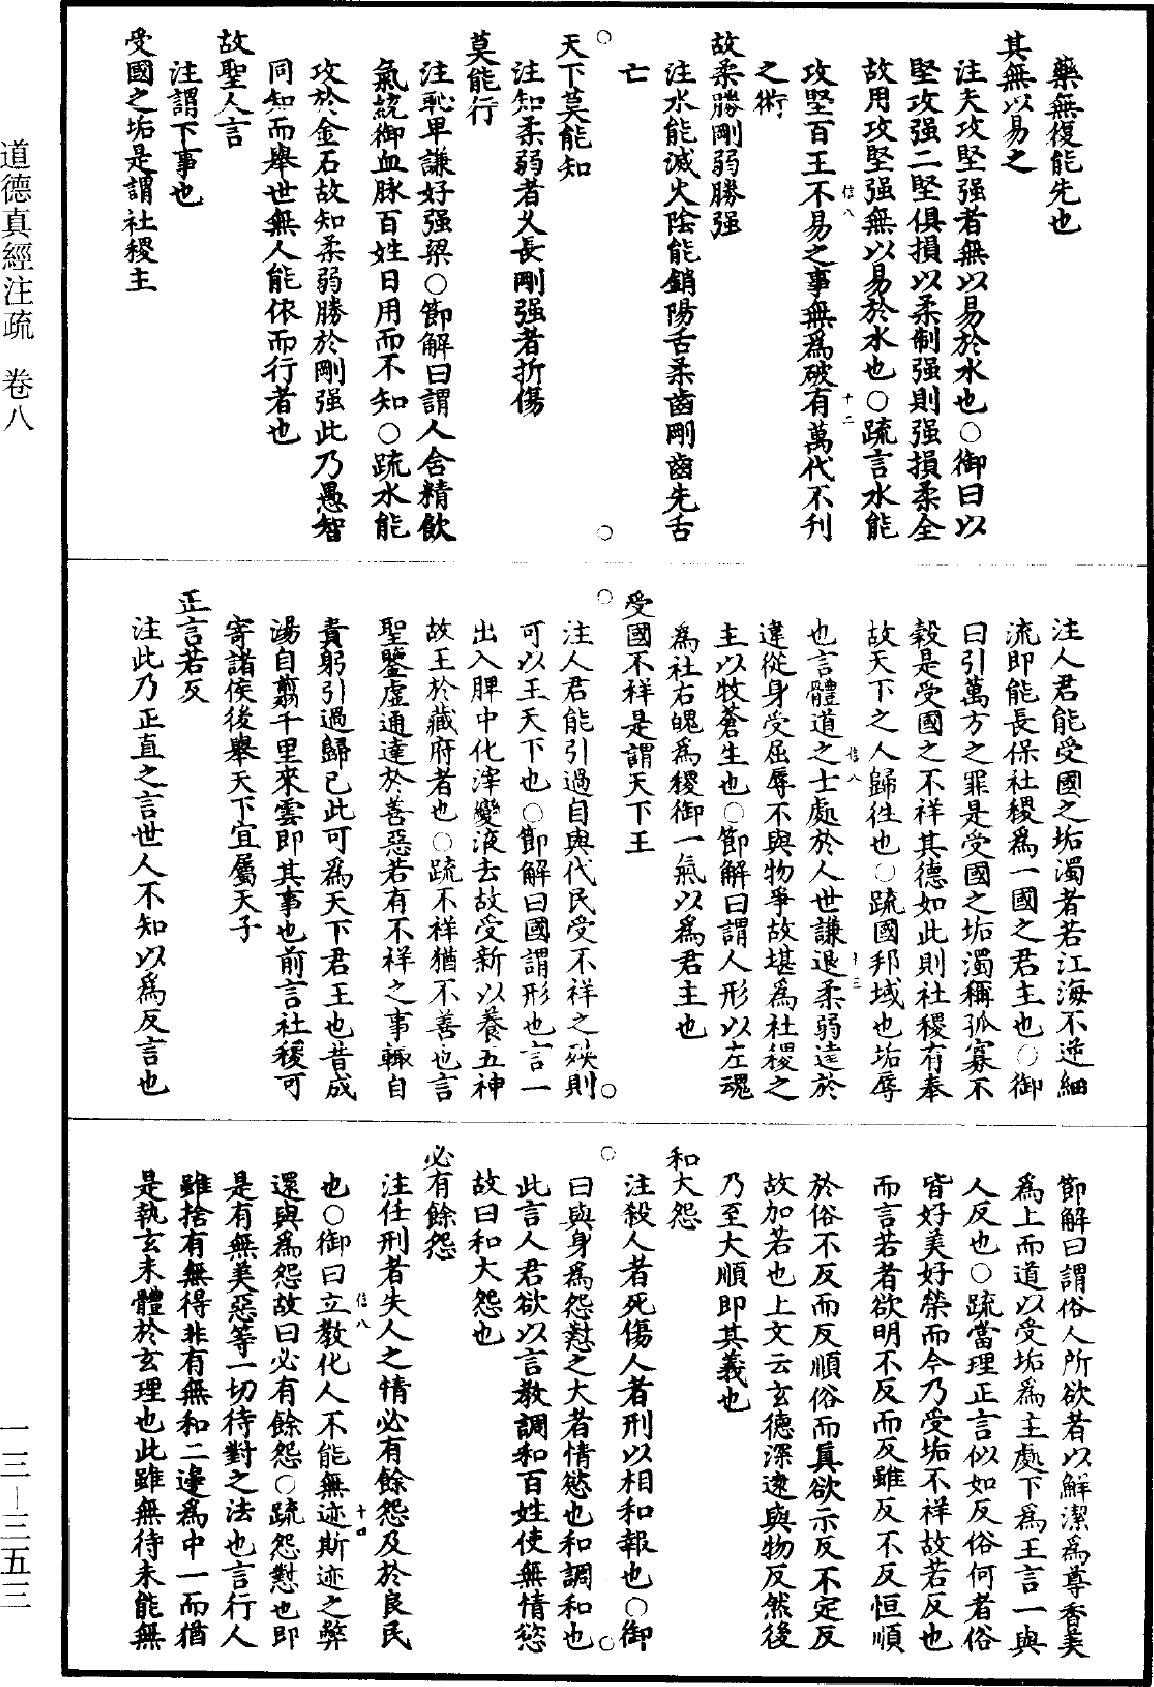 藥無復能先也
其無以易之
注夫攻堅强者無以易於水也○御曰以
堅攻强二堅俱損以柔制强則强損柔全
故用攻堅强無以易於水也○疏言水能
信八
十二
攻堅百王不易之事無爲破有萬代不刊
之術
故柔勝剛弱勝强
注水能滅火陰能銷陽舌柔齒剛齒先舌
亡
天下莫能知
注知柔弱者乆長剛强者折傷
莫能行
注恥卑謙好强梁○節解曰謂人含精飲
氣統御血脉百姓日用而不知○疏水能
攻於金石故知柔弱勝於剛强此乃愚智
同知而舉世無人能依而行者也
故聖人言
注謂下事也
受國之垢是謂社稷主
注人君能受國之垢濁者若江海不逆細
流即能長保社稷爲一國之君主也○御
曰引萬方之罪是受國之垢濁稱孤寡不
穀是受國之不祥其德如此則社稷有奉
故天下之人歸徃也○疏國邦域也垢辱
信八
十三
也言體道之士處於人世謙退柔弱逺於
違從身受屈辱不與物爭故堪爲社稷之
主以牧蒼生也○節解曰謂人形以左魂
爲社右魄爲稷御一氣以爲君主也
受國不祥是謂天下王
注人君能引過自與代民受不祥之殃則
可以王天下也○節解曰國謂形也言一
出入脾中化滓變液去故受新以養五神
故王於藏府者也○疏不祥猶不善也言
聖鑒虛通達於善惡若有不祥之事輙自
責躬引過歸己此可爲天下君王也昔成
湯自翦千里來雲即其事也前言社稷可
寄諸侯後舉天下宜屬天子
正言若反
注此乃正直之言世人不知以爲反言也
節解曰謂俗人所欲者以鮮潔爲尊香美
爲上而道以受垢爲主處下爲王言一與
人反也○疏當理正言似如反俗何者俗
皆好美好榮而今乃受垢不祥故若反也
而言若者欲明不反而反雖反不反恒順
於俗不反而反順俗而真欲示反不定反
故加若也上文云玄德深遠與物反然後
乃至大順即其義也
和大怨
注殺人者死傷人者刑以相和報也○御
曰與身爲怨懟之大者情慾也和調和也
此言人君欲以言教調和百姓使無情慾
故曰和大怨也
必有餘怨
注任刑者失人之情必有餘怨及於良民
信八
十四
也○御曰立教化人不能無迹斯迹之弊
還與爲怨故曰必有餘怨○疏怨懟也即
是有無美惡等一切待對之法也言行人
雖捨有無得非有無和二邊爲中一而猶
是執玄未體於玄理也此雖無待未能無
道德真經注疏　卷八
一三—三五三